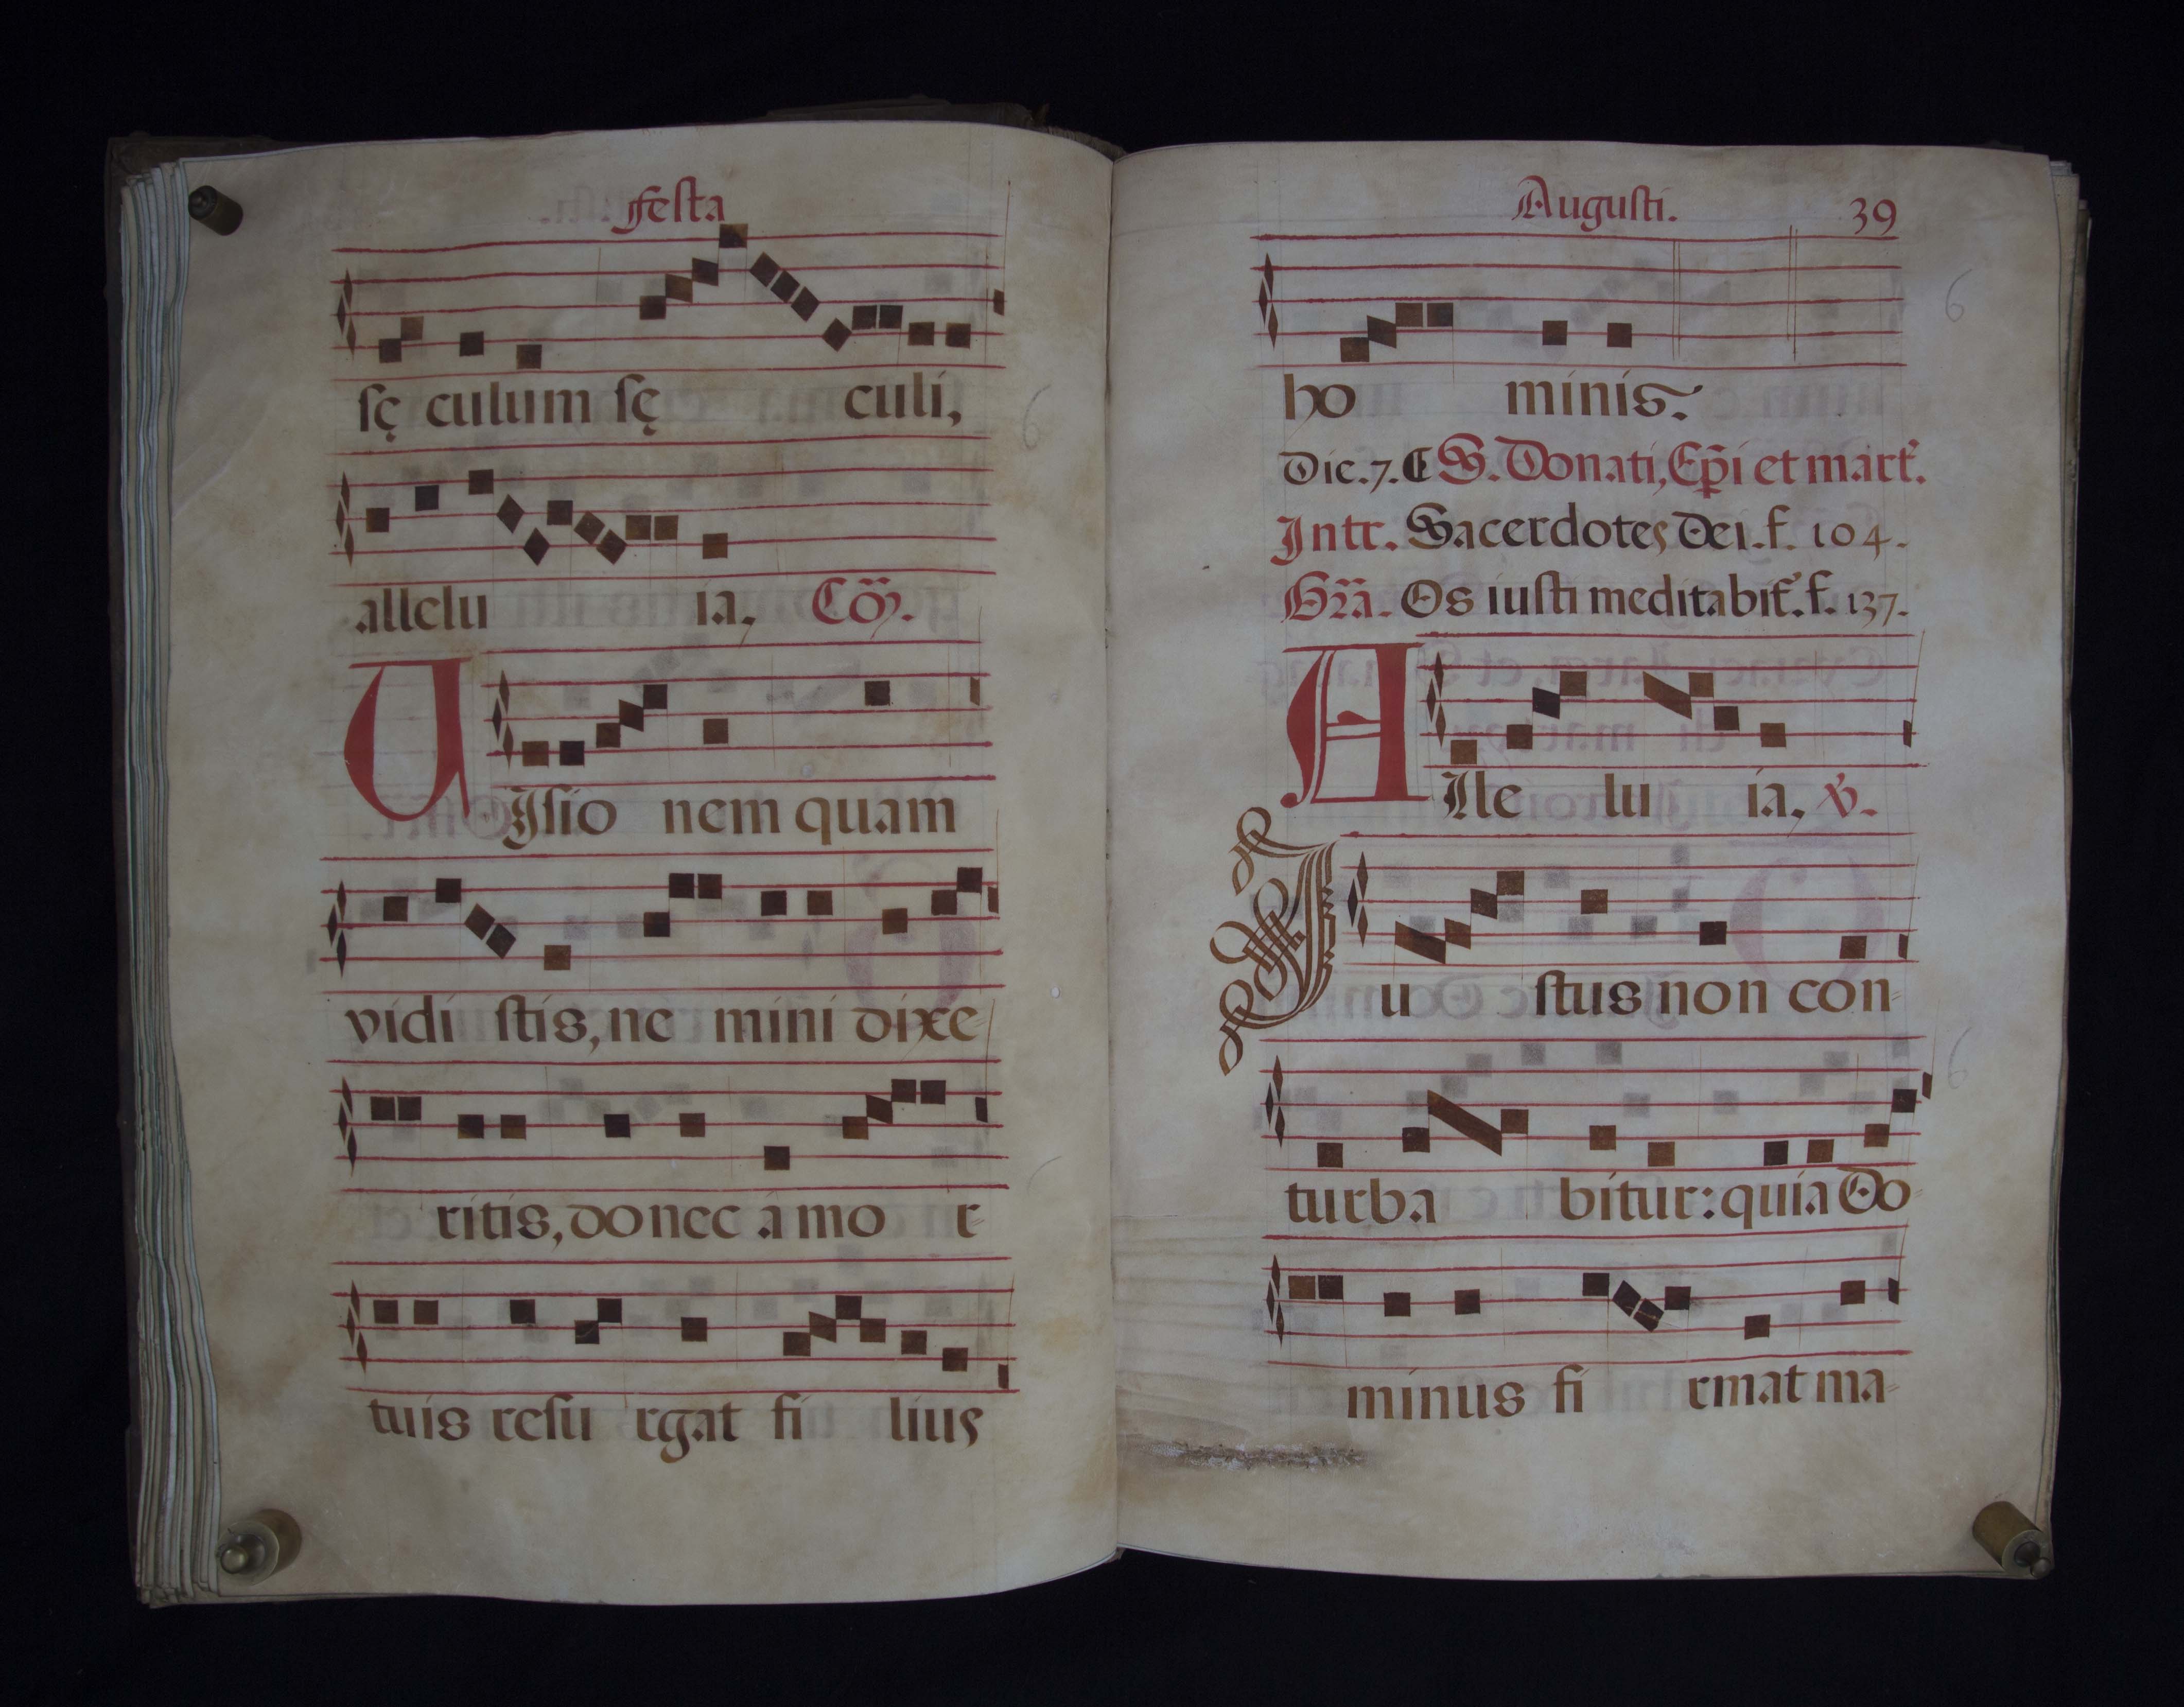 Festa
sę culum sę culi,
allelu ia, Cōꝫ.
UIsio nem quam
vidi stis, ne mini dixe-
ritis, donec a mo r-
tuis resu rgat fi lius
Augusti. 39
ho minis.
Die. 7. ¶ S. Donati, Ep̄i et mart̃.
Intr. Sacerdotes Dei. f. 104.
Gr̄a. Os iusti meditabit̃. f. 137.
Alle lu ia, ℣.
Ju stus non con-
turba bitur: quia Do-
minus fi rmat ma-